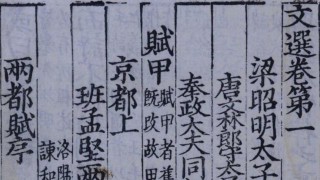 文選卷第一
梁昭明太子
唐文林郎守太
奉政大夫同
賦甲
賦甲者舊
既改故甲
京都上
班孟堅兩
洛陽
諫和
兩都賦序